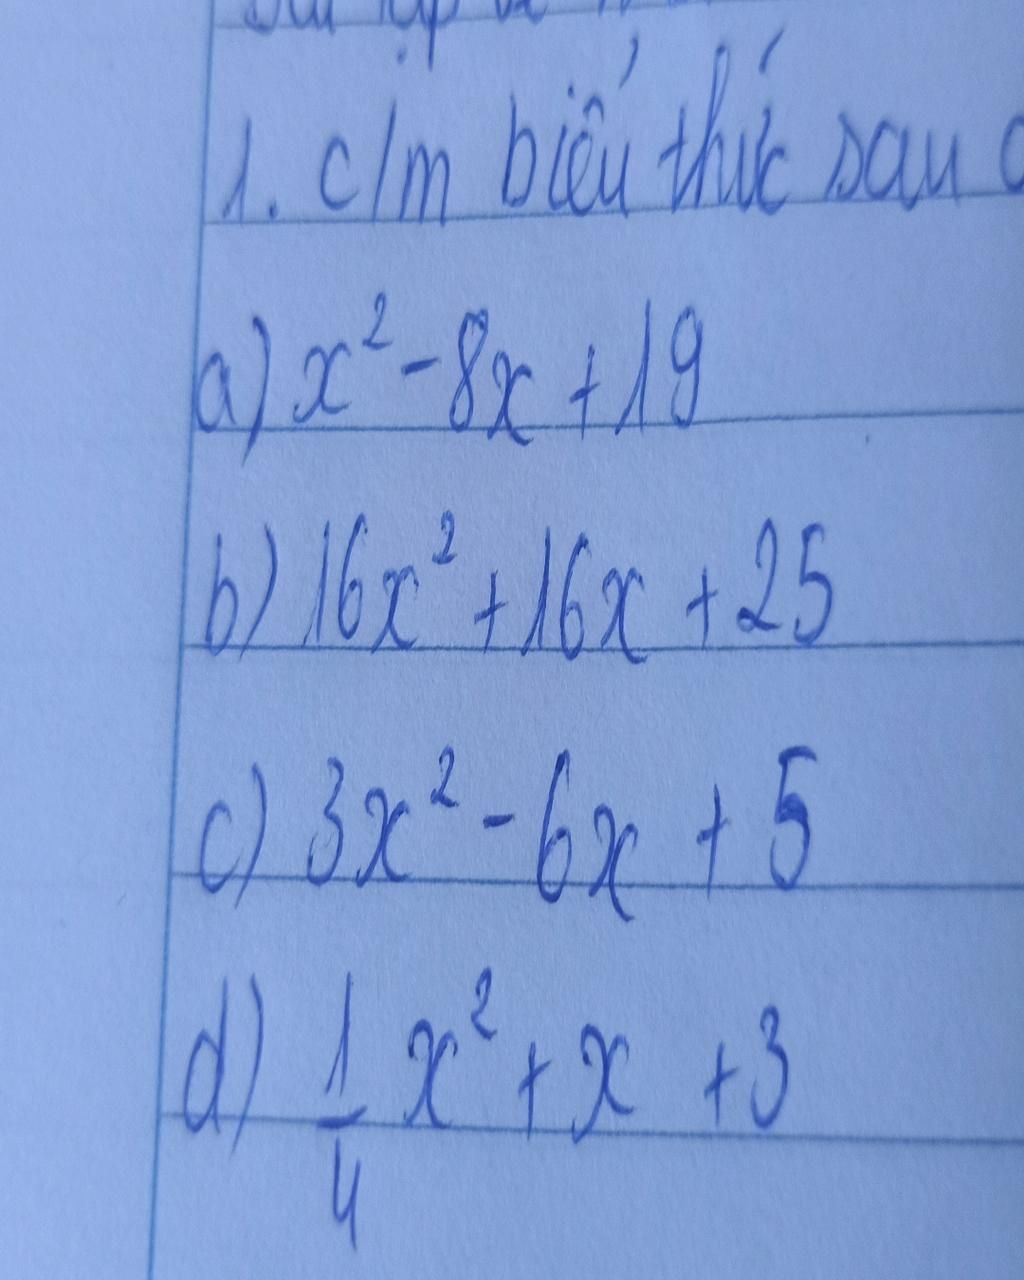 1. c/m biểu thức sau
a) x² - 8x + 19
b) 16x² + 16x + 25
c) 3x² - 6x + 5
d) 1/4 x² + x + 3